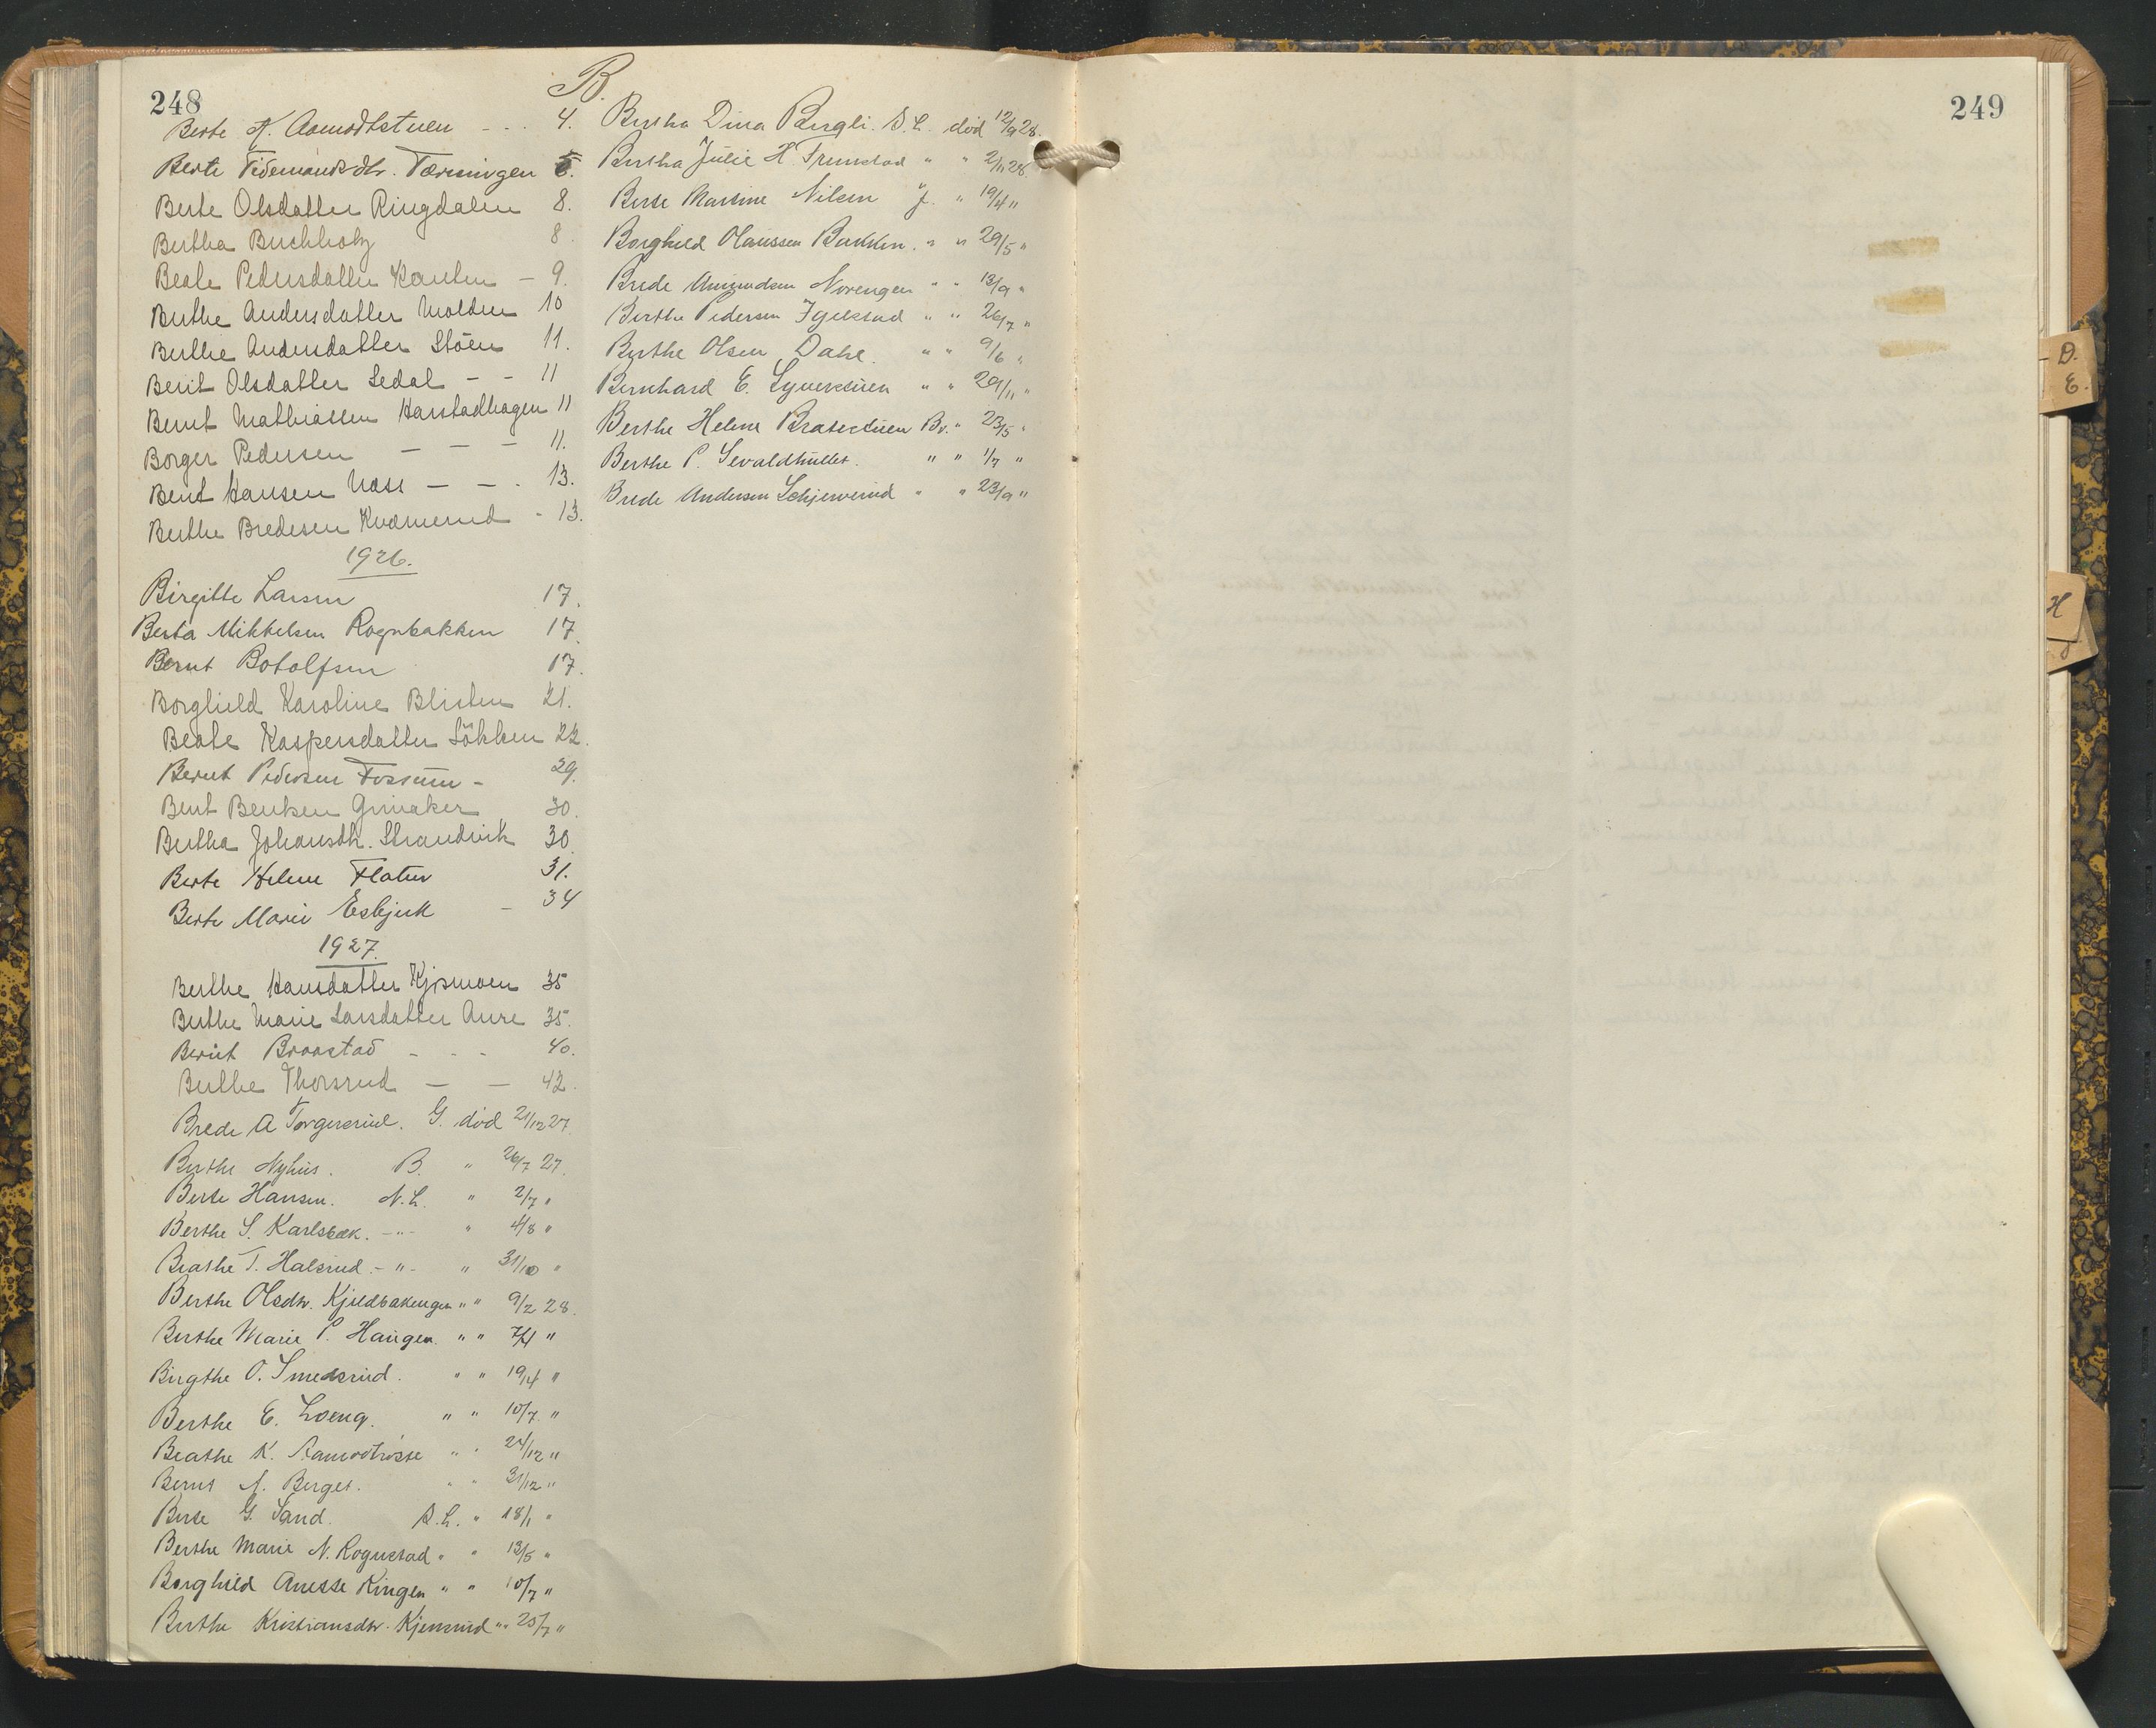 248
B.
Berte K. Aamodtstuen - - - 4.
Berte Tidemandsdtr. Tærningen 5.
Berte Olsdatter Ringdalen 8.
Bertha Buchholz 8.
Beate Pedersdatter Hauten - 9.
Berthe Andersdatter Molden 10
Berthe Andersdatter Stöen 11.
Berit Olsdatter Sedal - - 11
Bernt Mathiassen Harstadhagen 11
Borger Pedersen - - - 11.
Bent Hansen Næss - - - 13.
Berthe Bredesen Kværnerud - 13.
1926.
Birgitte Larsen 17.
Berta Mikkelsen Rognbakken 17.
Bernt Botolfsen 17.
Borghild Karoline Blisten 21.
Beate Kaspersdatter Lökken 22.
Bernt Pedersen Fossum - 29.
Bent Bentsen Grinaker 30.
Bertha Johansdtr. Strandvik 30.
Berte Helene Flaten 31.
Berte Marie Esbjuk - 34
1927.
Berthe Hansdatter Kjosmoen 35
Berthe Marie Larsdatter Aure 35.
Berit Braastad - - - 40.
Berthe Thorsrud - - 42.
Brede A Torgersrud. G. död 21/12 27.
Berthe Nyhus. B. " 26/7 27.
Berte Hansen. N.L. " 2/7 "
Berthe S. Karlsbæk. -"- " 4/8 "
Beathe T. Halsrud. -"- " 31/10 "
Berthe Olsdtr. Kjeldbakengen " " 9/2 28.
Berthe Marie P. Haugen. " " 7/4 "
Birgthe O. Smedsrud. " " 19/4 "
Berthe E. Loeng. " " 10/7 "
Beathe K. Aamodtrösse " " 24/12 "
Bernt A. Berget. " " 31/12 "
Berte G. Sand. S.L. " 18/1 "
Berthe Marie N. Rognstad " " 13/5 "
Borghild Anette Ringen " " 10/7 "
Berthe Kristiansdtr. Kjensrud " " 25/7 "
Bertha Dina Bergli. S.L. död 12/9 28.
Bertha Julie H. Frunstad " " 2/11 28.
Berte Martine Nilsen J. " 19/4 "
Borghild Olaussen Bakken. " " 29/5 "
Brede Amundsen Norengen " " 13/9 "
Berthe Pedersen Igelsrud " " 26/7 "
Berthe Olsen Dahl. " " 9/6 "
Bernhard E. Syverstuen " " 29/11 "
Berthe Helene Bratestuen Bv. " 23/5 "
Berthe P. Sevaldhullet. " " 1/7 "
Brede Andersen Schjerverud " " 23/9 "
249
D.
E.
H